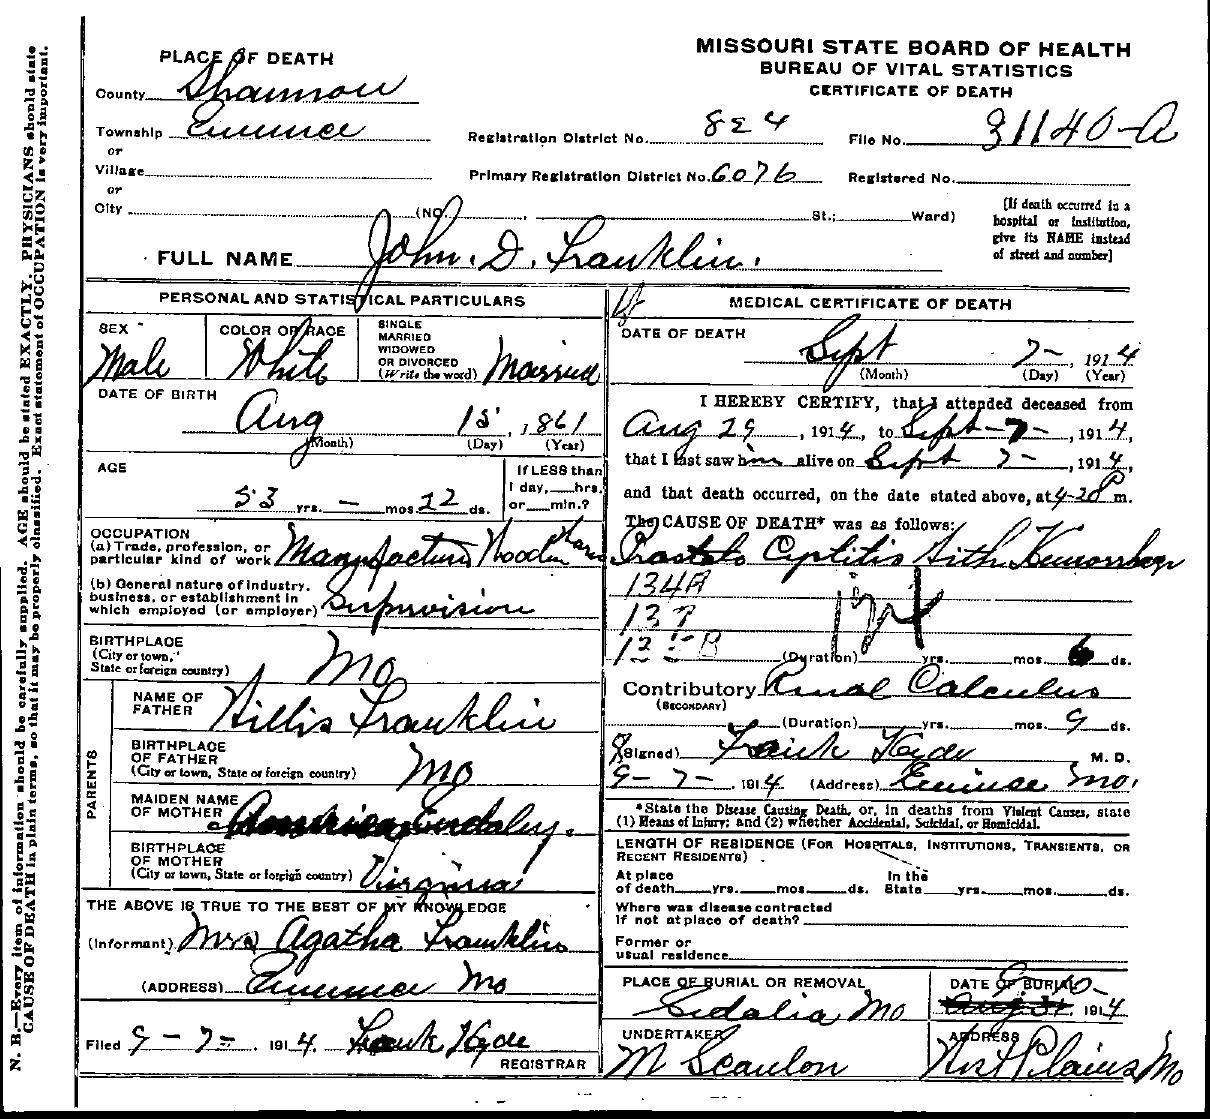 MISSOURI STATE BOARD OF HEALTH
BUREAU OF VITAL STATISTICS
CERTIFICATE OF DEATH
PLACE OF DEATH
County Shannon
Township Eminence
or
Village
or
City (NO. , St.; Ward)
Registration District No. 824 File No. 31140-A
Primary Registration District No. 6076 Registered No.
[If death occurred in a
hospital or institution,
give its NAME instead
of street and number]
FULL NAME John. D. Franklin.
PERSONAL AND STATISTICAL PARTICULARS
SEX Male
COLOR OR RACE White
SINGLE
MARRIED
WIDOWED
OR DIVORCED
(Write the word) Married
DATE OF BIRTH
Aug 15, 1861
(Month) (Day) (Year)
AGE
53 yrs. — mos. 22 ds.
If LESS than
1 day, hrs.
or min.?
OCCUPATION
(a) Trade, profession, or
particular kind of work
(b) General nature of industry,
business, or establishment in
which employed (or employer) Supervision
BIRTHPLACE
(City or town,
State or foreign country) Mo
PARENTS
NAME OF
FATHER Willis Franklin
BIRTHPLACE
OF FATHER
(City or town, State or foreign country) Mo
MAIDEN NAME
OF MOTHER America
BIRTHPLACE
OF MOTHER
(City or town, State or foreign country) Virginia
THE ABOVE IS TRUE TO THE BEST OF MY KNOWLEDGE
(Informant) Mrs Agatha Franklin
(ADDRESS) Eminence Mo
Filed 9-7-, 1914. Frank Hyde
REGISTRAR
MEDICAL CERTIFICATE OF DEATH
DATE OF DEATH
Sept 7-, 1914
(Month) (Day) (Year)
I HEREBY CERTIFY, that I attended deceased from
Aug 29, 1914, to Sept-7-, 1914,
that I last saw him alive on Sept 7-, 1914,
and that death occurred, on the date stated above, at 4-20 P m.
The CAUSE OF DEATH* was as follows:
134A
137
(Duration) yrs. mos. 6 ds.
Contributory Renal Calculus
(SECONDARY)
(Duration) yrs. mos. 9 ds.
(Signed) Frank Hyde M. D.
9-7-, 1914 (Address) Eminence Mo.
*State the Disease Causing Death, or, in deaths from Violent Causes, state
(1) Means of Injury; and (2) whether Accidental, Suicidal, or Homicidal.
LENGTH OF RESIDENCE (FOR HOSPITALS, INSTITUTIONS, TRANSIENTS, OR
RECENT RESIDENTS)
At place In the
of death yrs. mos. ds. State yrs. mos. ds.
Where was disease contracted
if not at place of death?
Former or
usual residence
PLACE OF BURIAL OR REMOVAL
Sedalia Mo
DATE OF BURIAL
1914
UNDERTAKER
M Scanlon
ADDRESS
West Plains Mo
N. B.—Every item of information should be carefully supplied. AGE should be stated EXACTLY. PHYSICIANS should state
CAUSE OF DEATH in plain terms, so that it may be properly classified. Exact statement of OCCUPATION is very important.